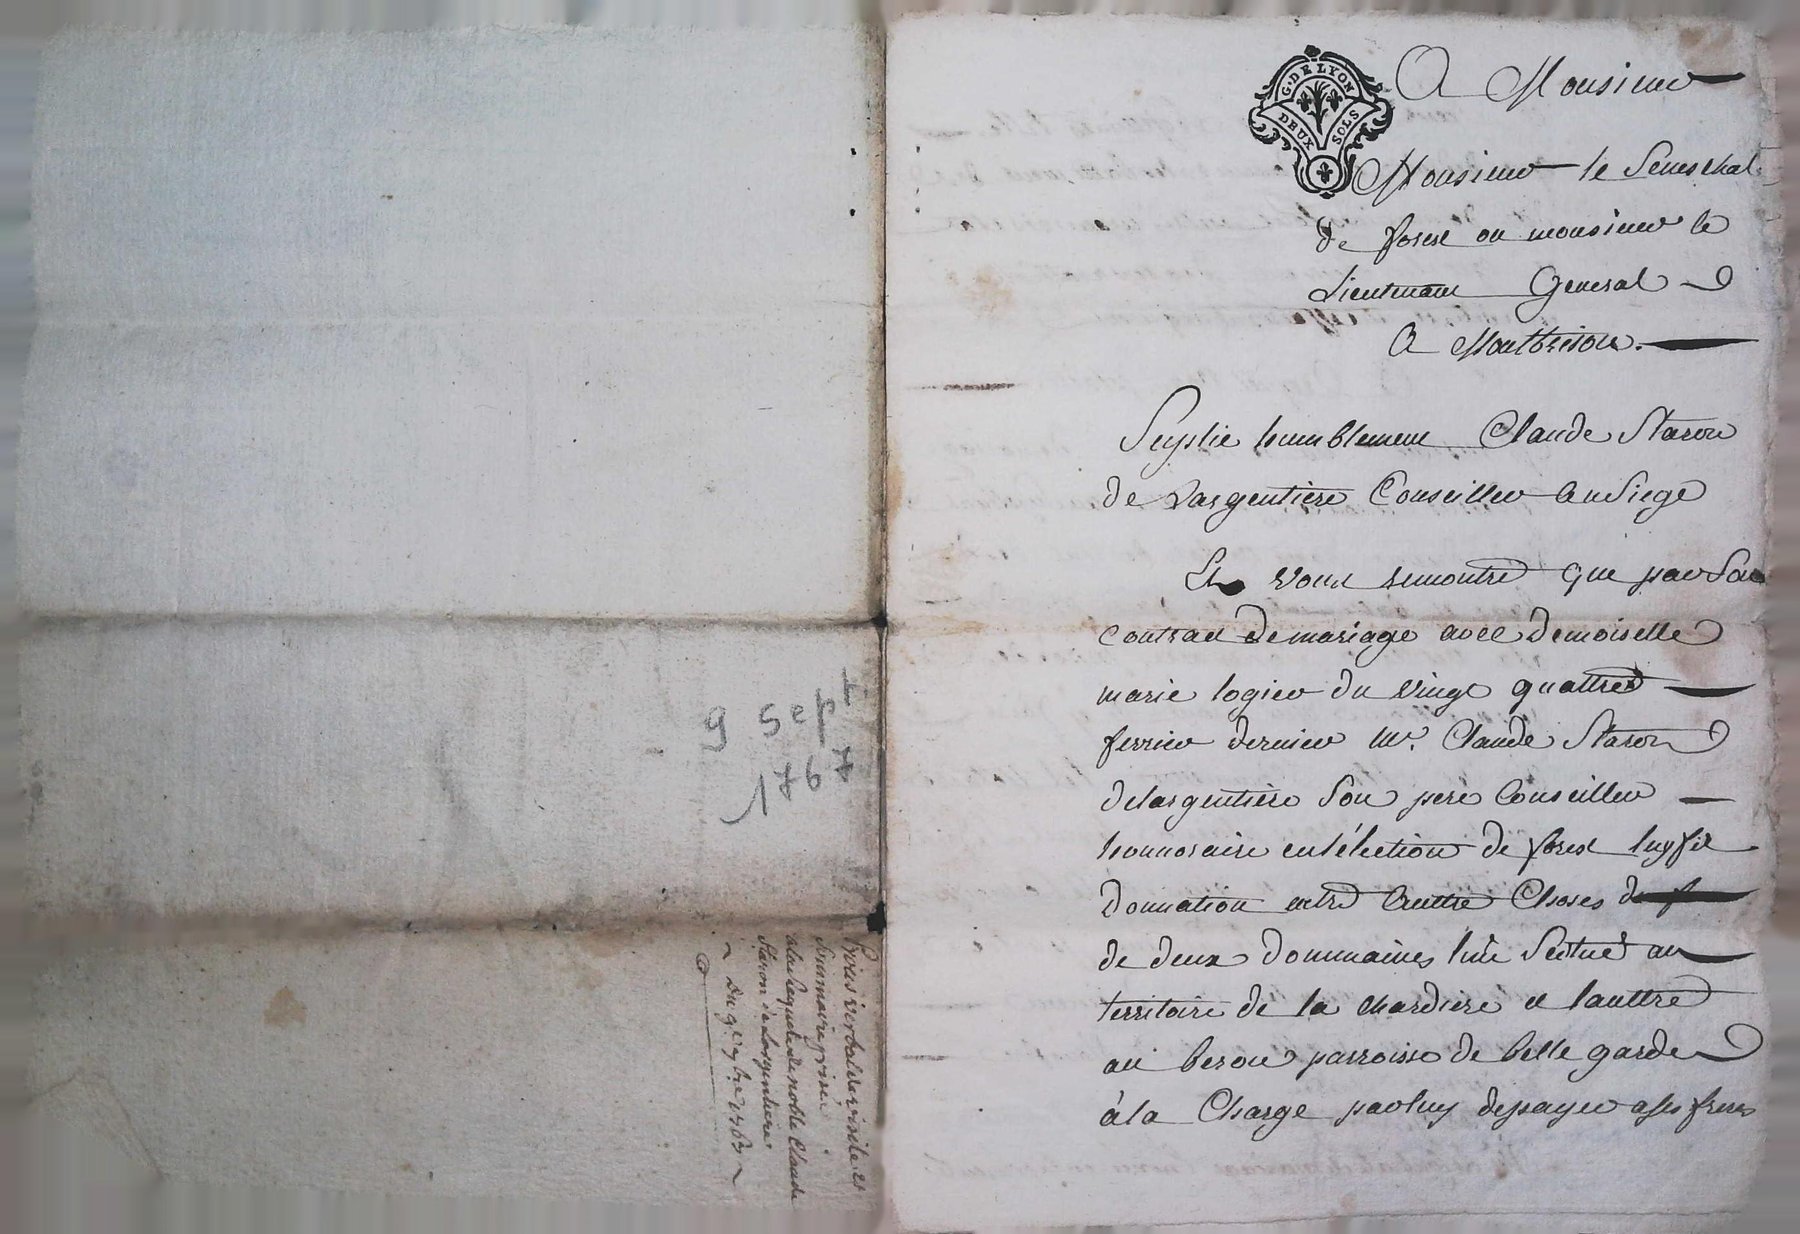 9 sept
1767
Procès verbal de visite et
Sommaire prisee
a la Requete de noble Claude
Staron de Largentiere
Du 9e 7bre 1767
G. DE LYON
DEUX SOLS
A Monsieur
Monsieur le Seneschal
de forest ou monsieur le
Lieutenant General
A Montbrison.
Suplie humblement Claude Staron
de Largentiere Conseiller au Siege
Et vous remontre que par Son
contrat de mariage avec demoiselle
marie logier du vingt quattre
fevrier dernier Mr. Claude Staron
delargentière Son pere Conseiller
honnoraire en l'élection de forest luy fit
donnation entre Auttre Choses
de deux dommaines lun Scitué au
territoire de la chardiere et lauttre
au berou parroisse de belle garde
à la Charge par luy de payer a ses freres